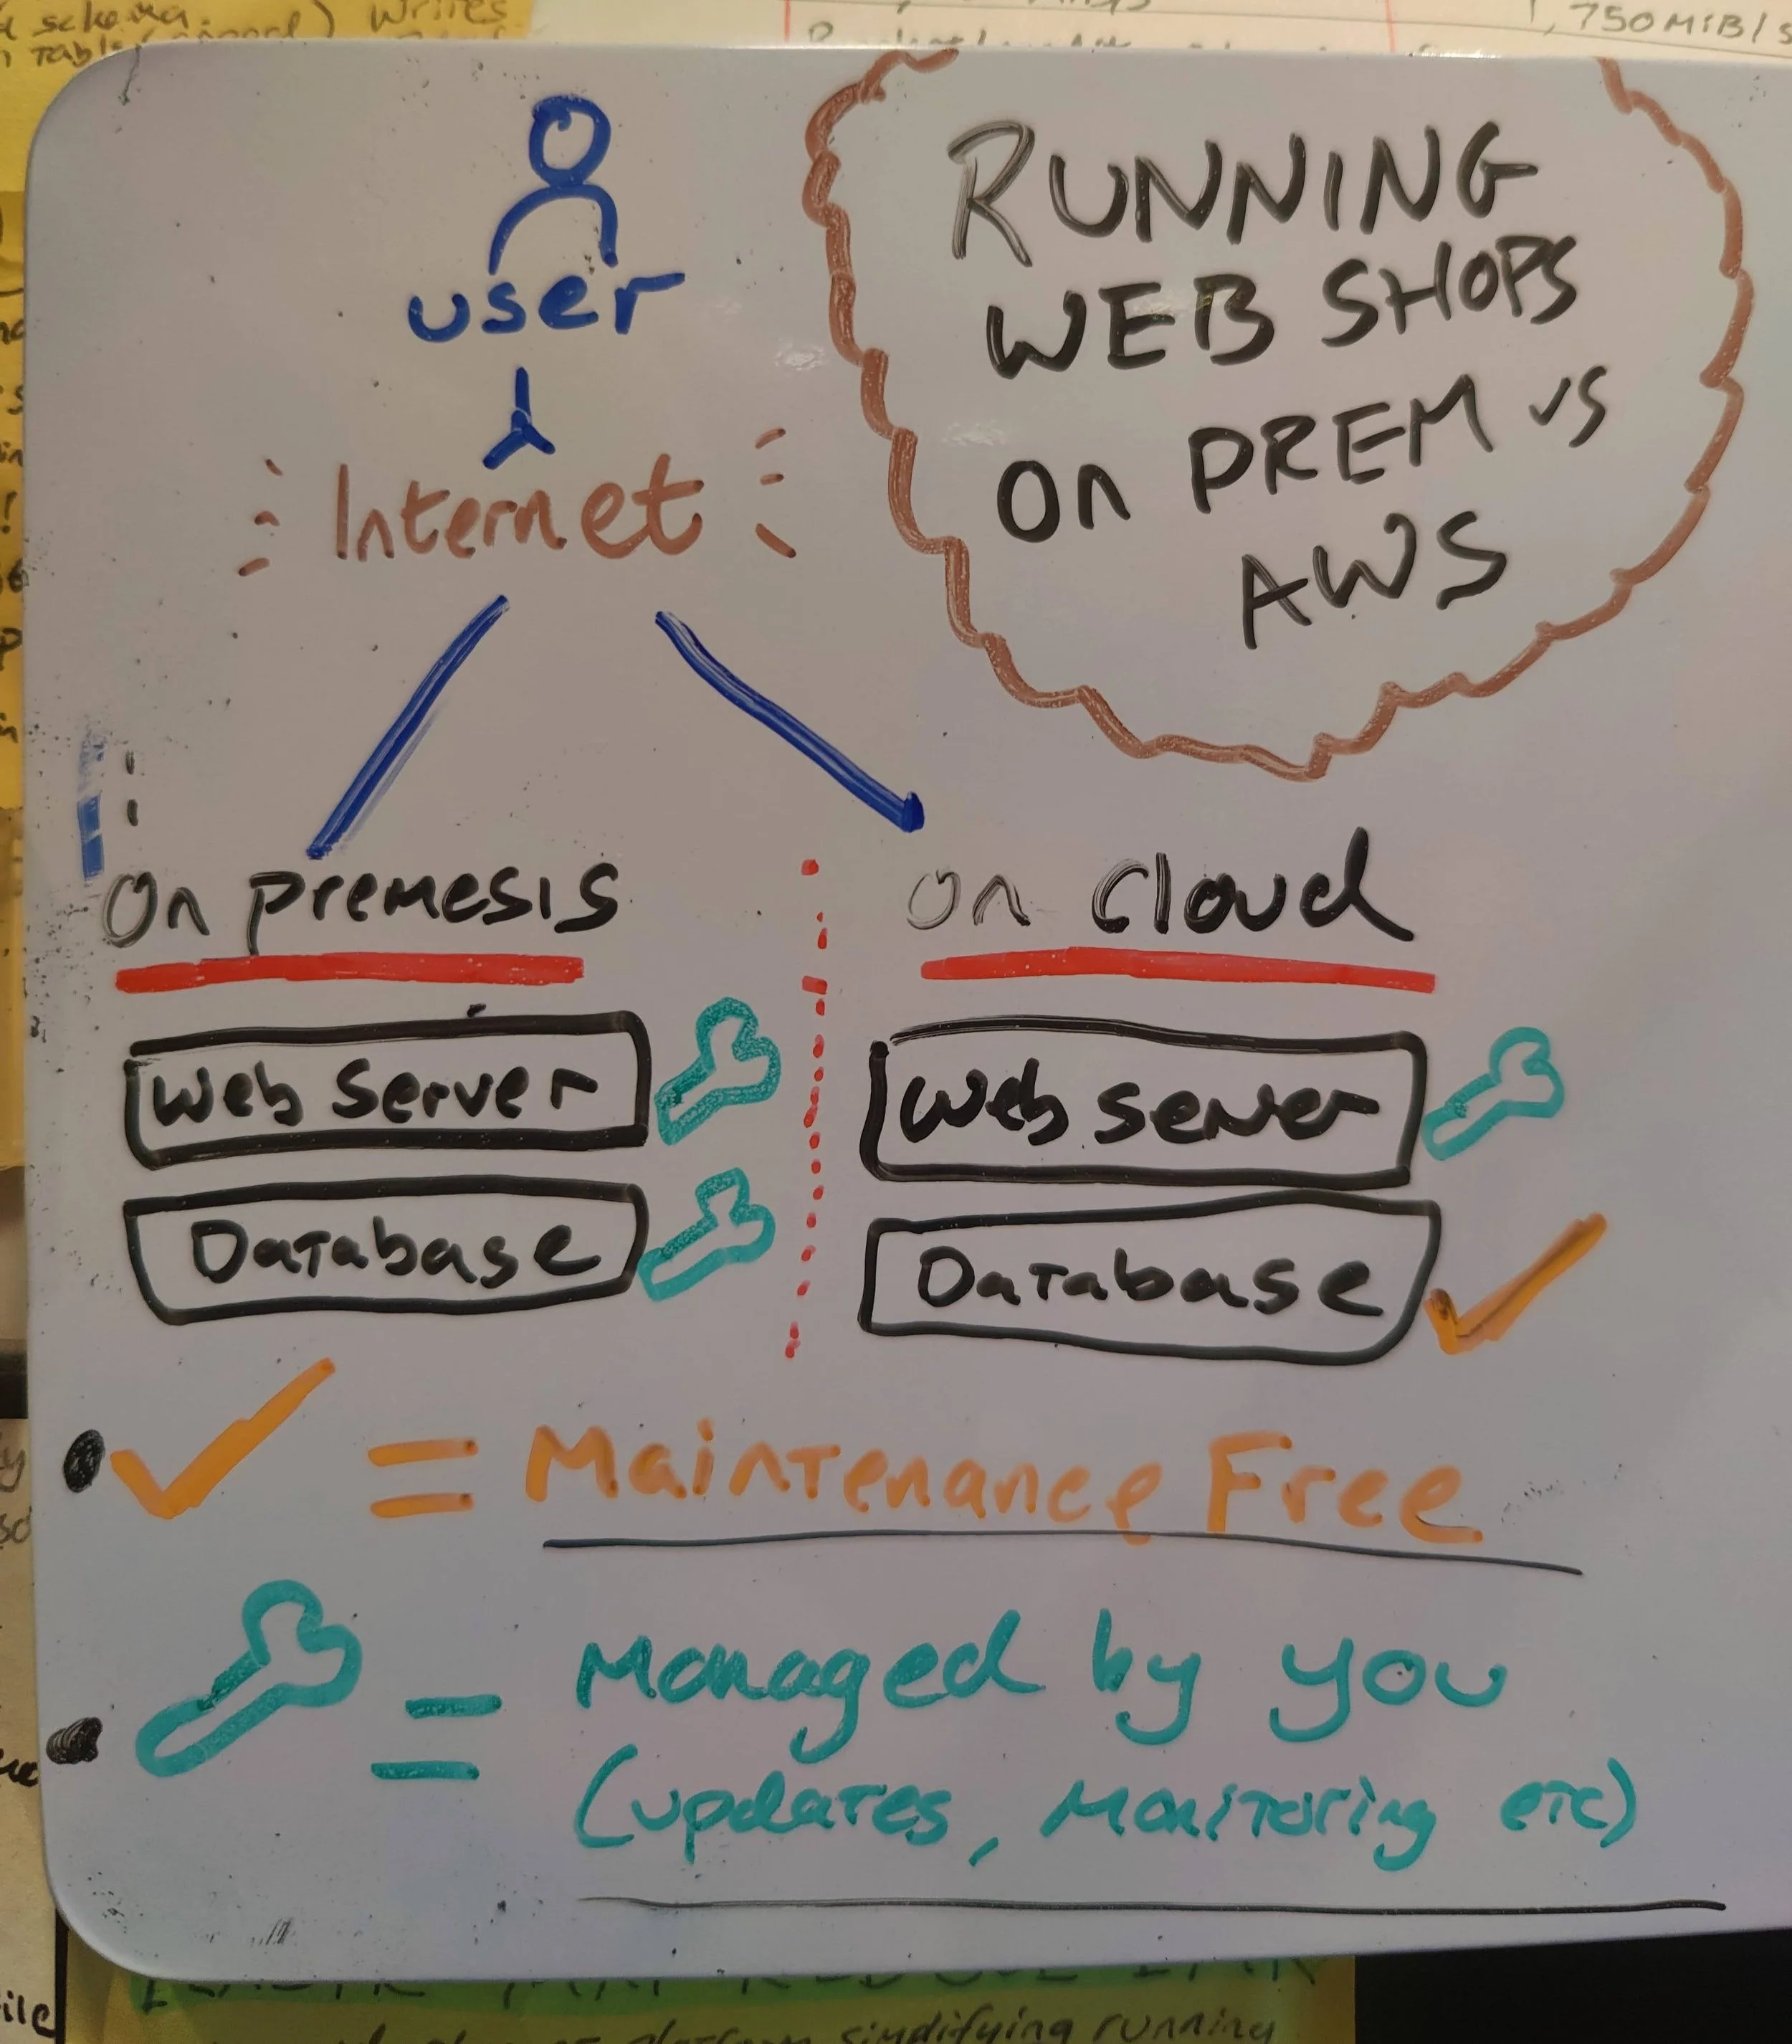 schema.
) Writes
Table
1,750MiB/s
user
Internet
RUNNING
WEB SHOPS
On PREM vs
AWS
On premesis
on cloud
Web Server
Database
Web Server
Database
= Maintenance Free
= Managed by you
(updates, Monitoring etc)
platform simplifying running